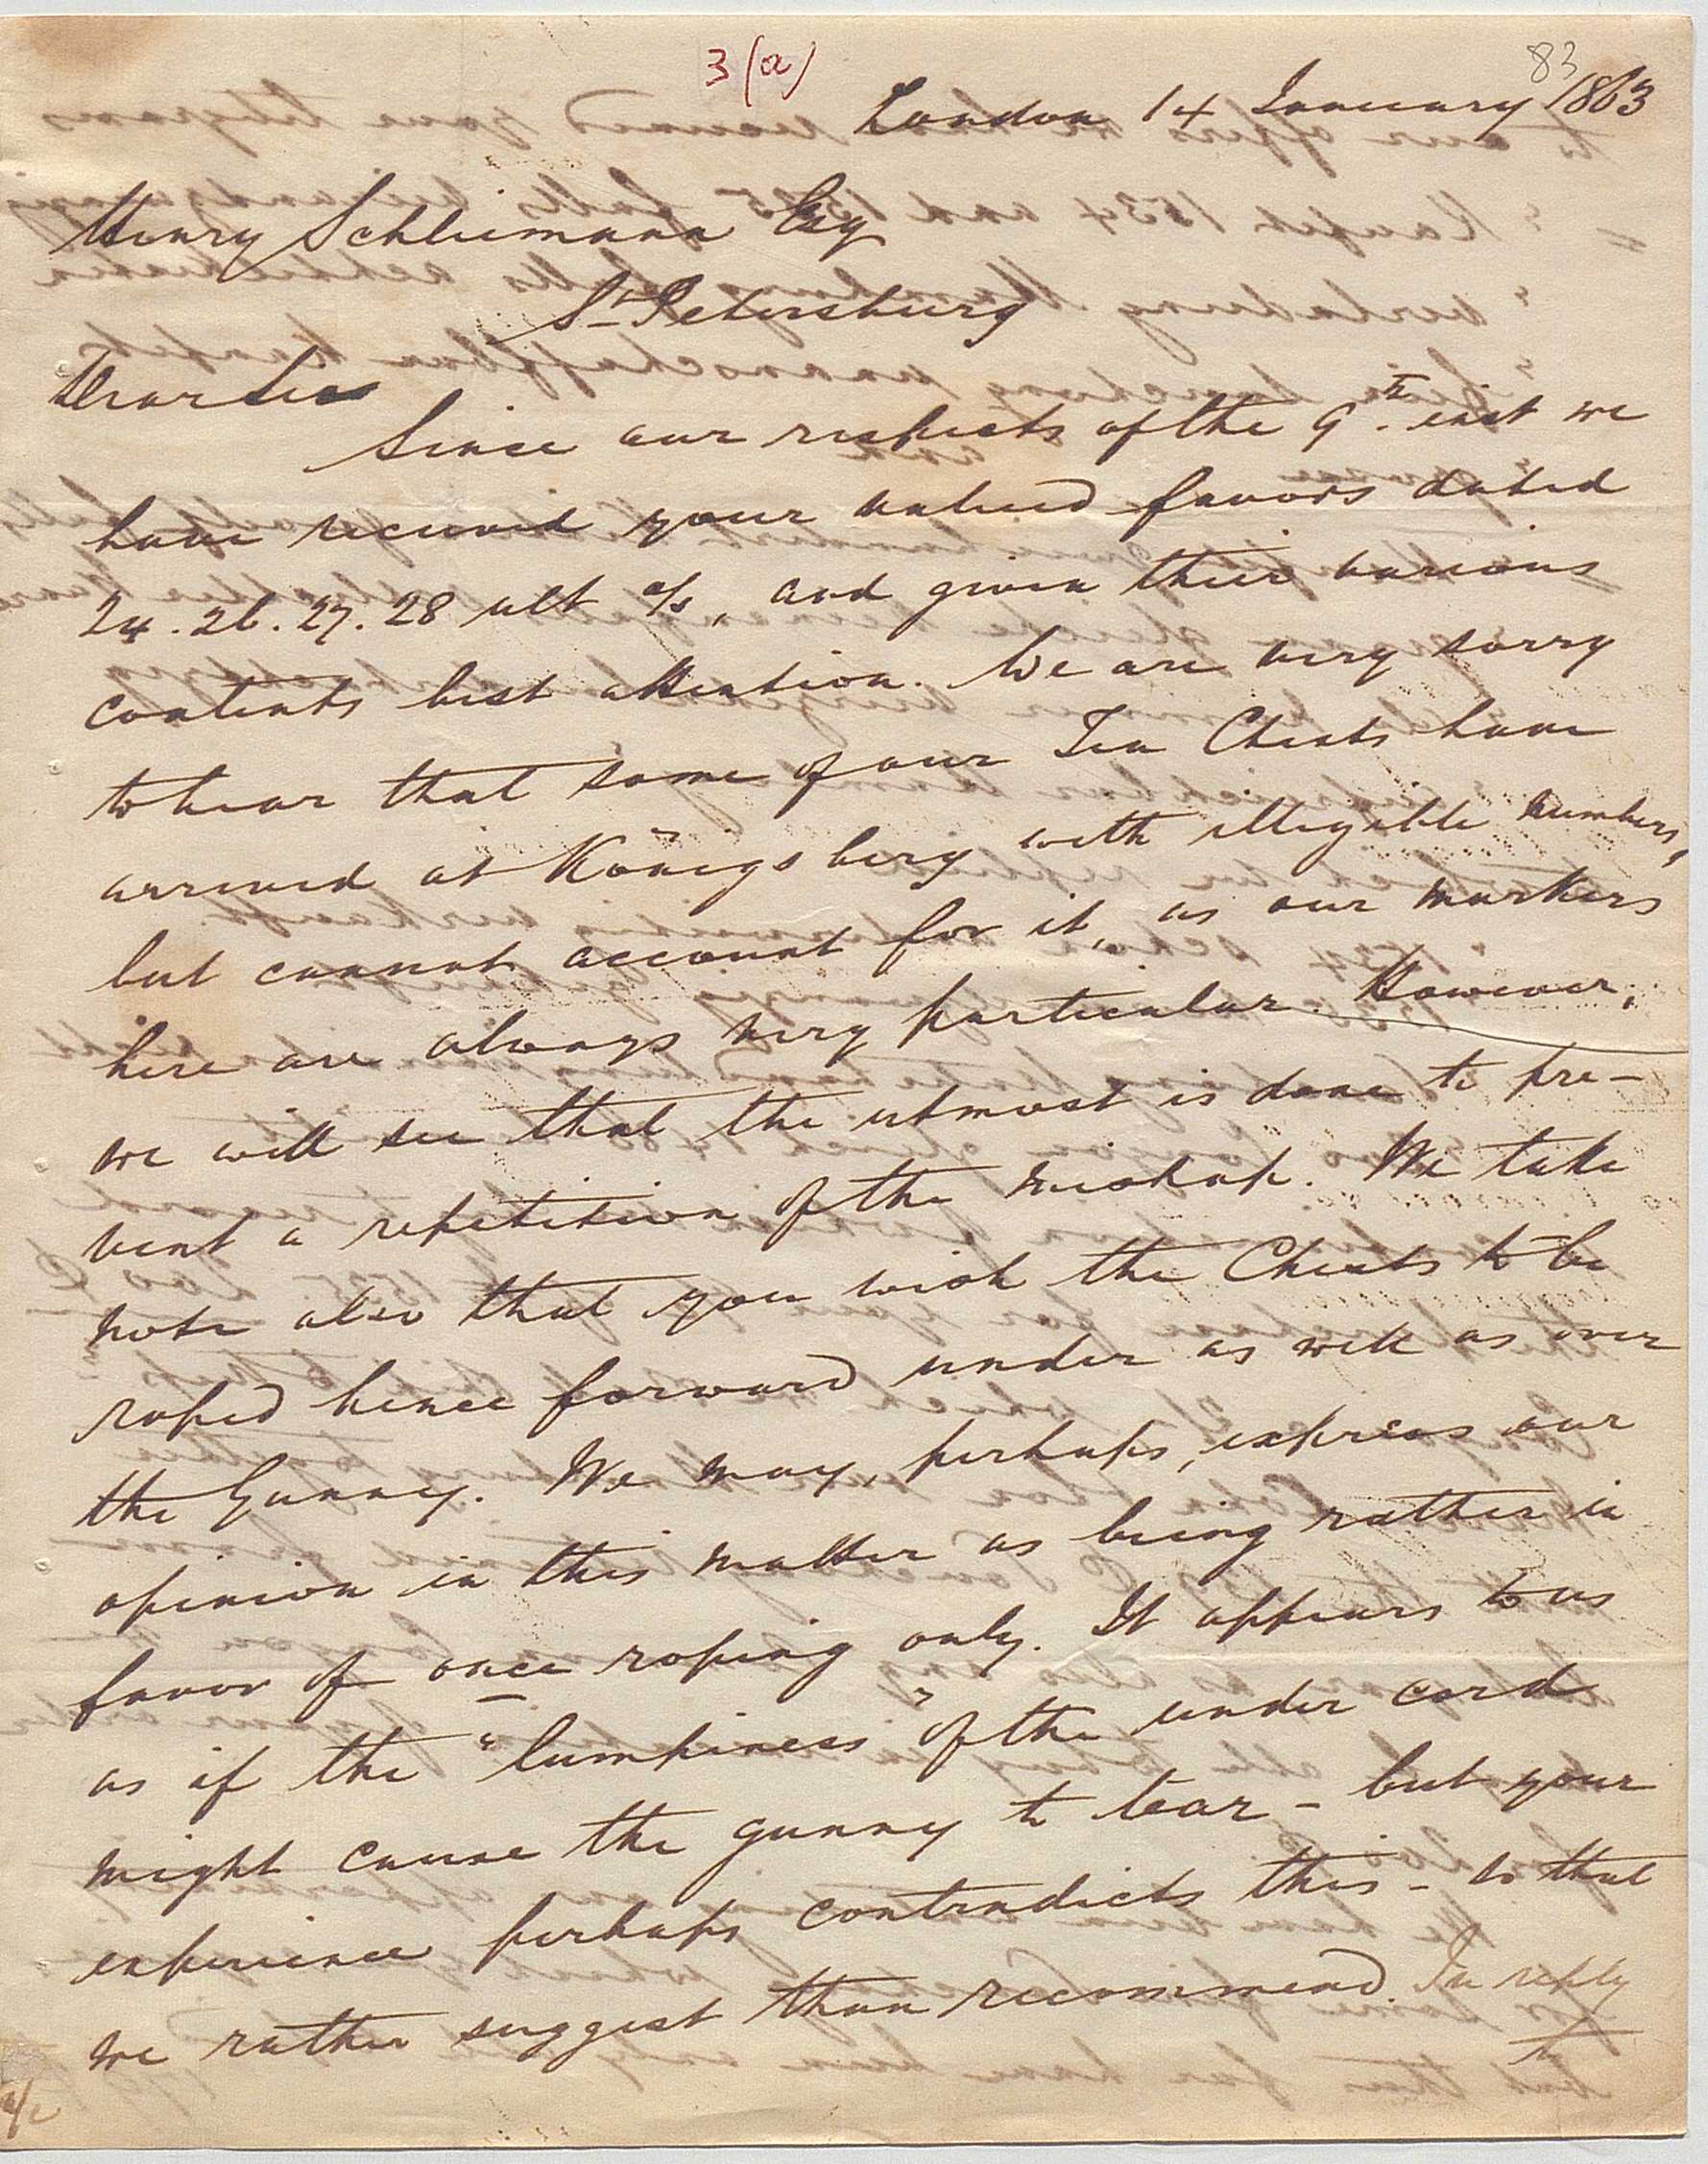 3 (a)
83
London 14 January 1863
Henry Schliemann Esq
St Petersburg
Dear Sir
Since our respects of the 9th. inst we
have received your valued favors dated
24. 26. 27. 28 ult o/s, and given their various
contents best attention. We are very sorry
to hear that some of our Tea Chests have
arrived at Königsberg with illegible numbers,
but cannot account for it, as our markers
here are always very particular. However,
we will see that the utmost is done to pre-
vent a repetition of the mishap. We take
note also that you wish the Chests to be
roped hence forward under as well as over
the Gunny. We may, perhaps, express our
opinion in this matter as being rather in
favor of once roping only. It appears to us
as if the "lumpiness" of the under cord
might cause the gunny to tear - but your
experience perhaps contradicts this - so that
we rather suggest than recommend. In reply
to